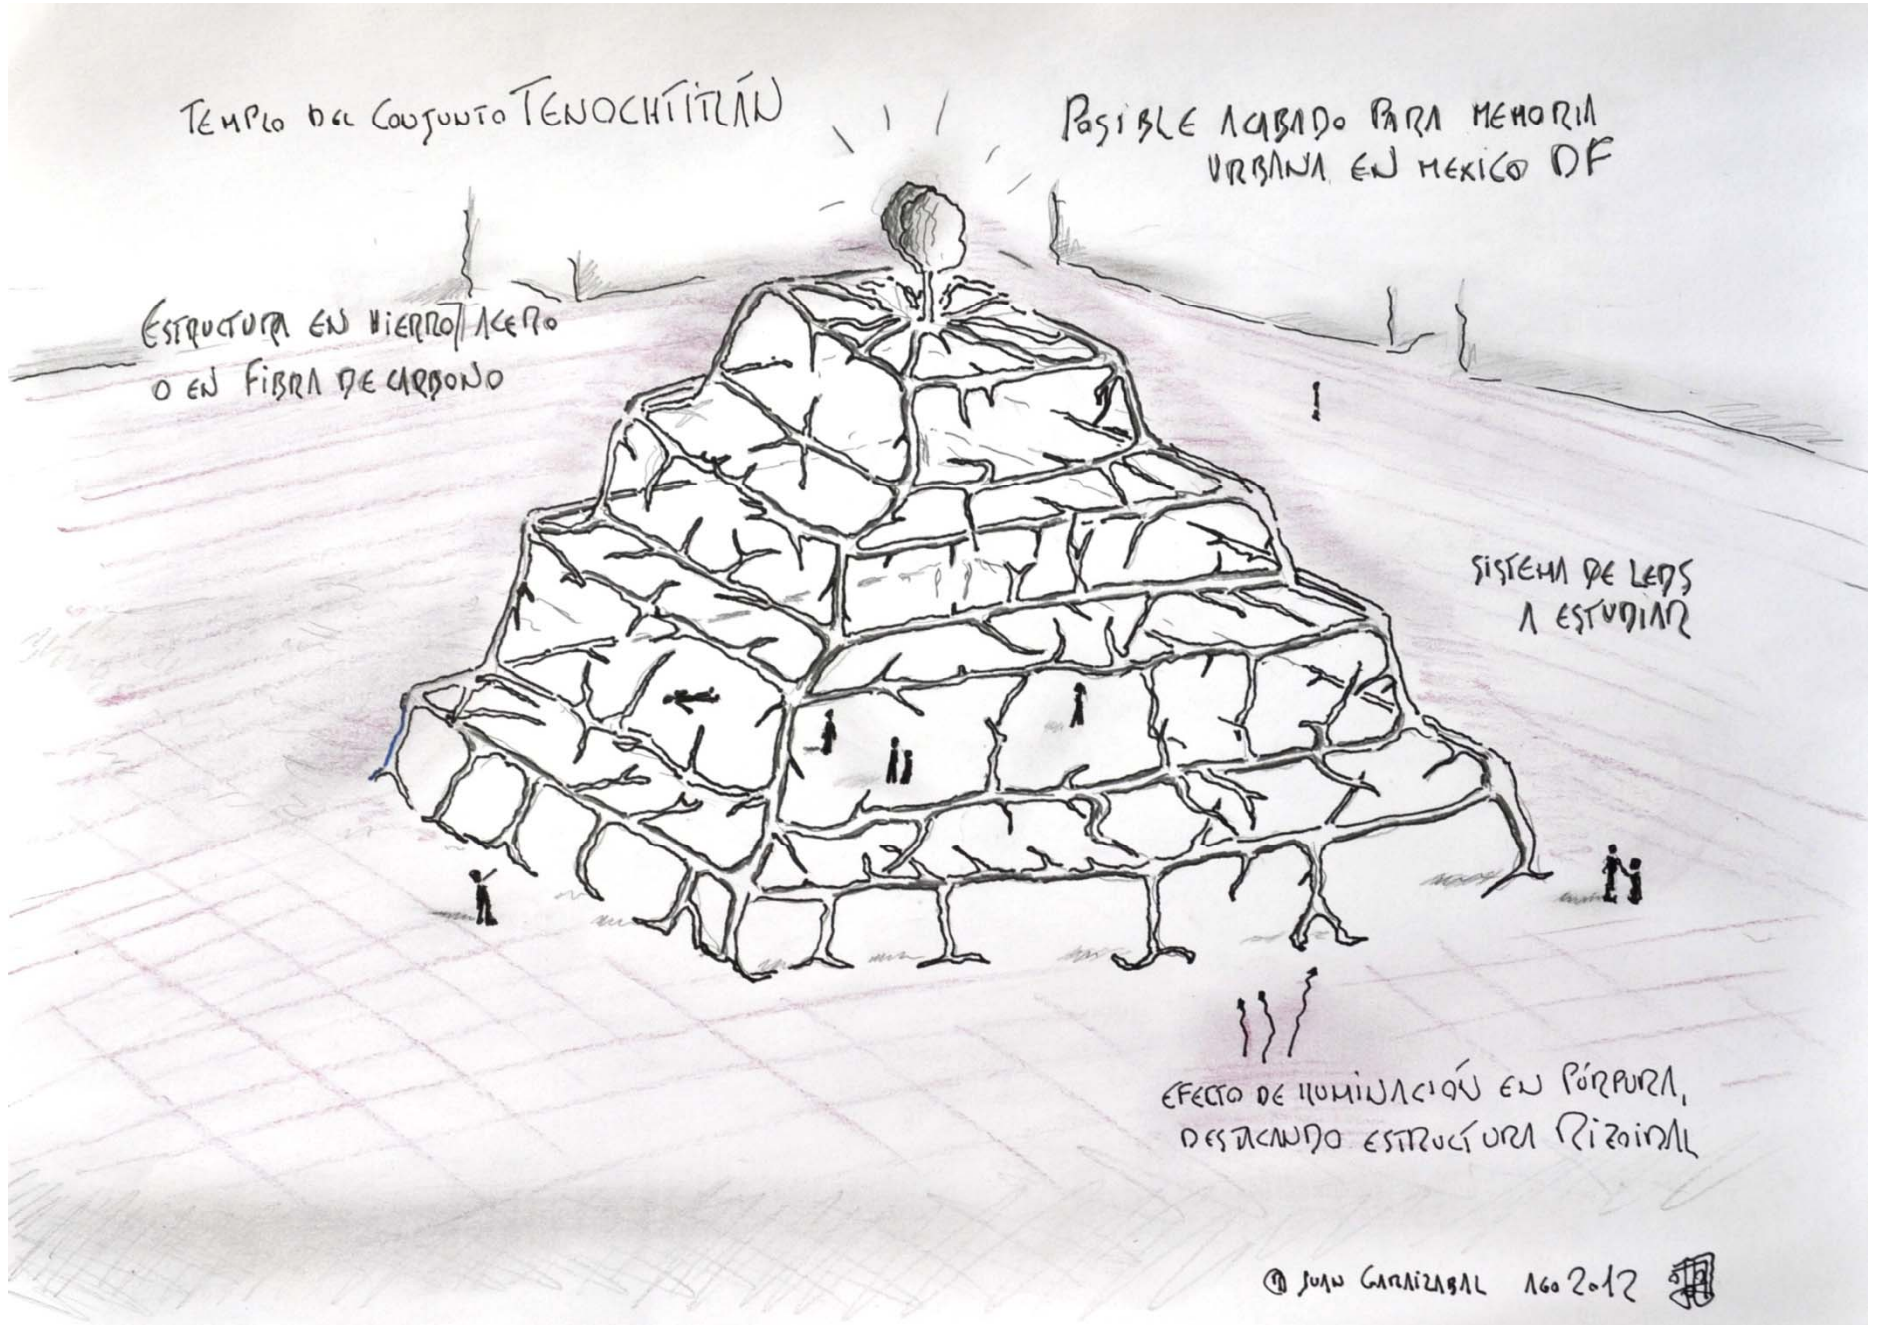 TEMPLO DEL CONJUNTO TENOCHTITLÁN
POSIBLE ACABADO PARA MEMORIA
URBANA EN MEXICO DF
ESTRUCTURA EN HIERRO/ACERO
O EN FIBRA DE CARBONO
SISTEMA DE LEDS
A ESTUDIAR
EFECTO DE ILUMINACIÓN EN PÚRPURA,
DESTACANDO ESTRUCTURA RIZOIDAL
JUAN GARAIZABAL AGO 2012